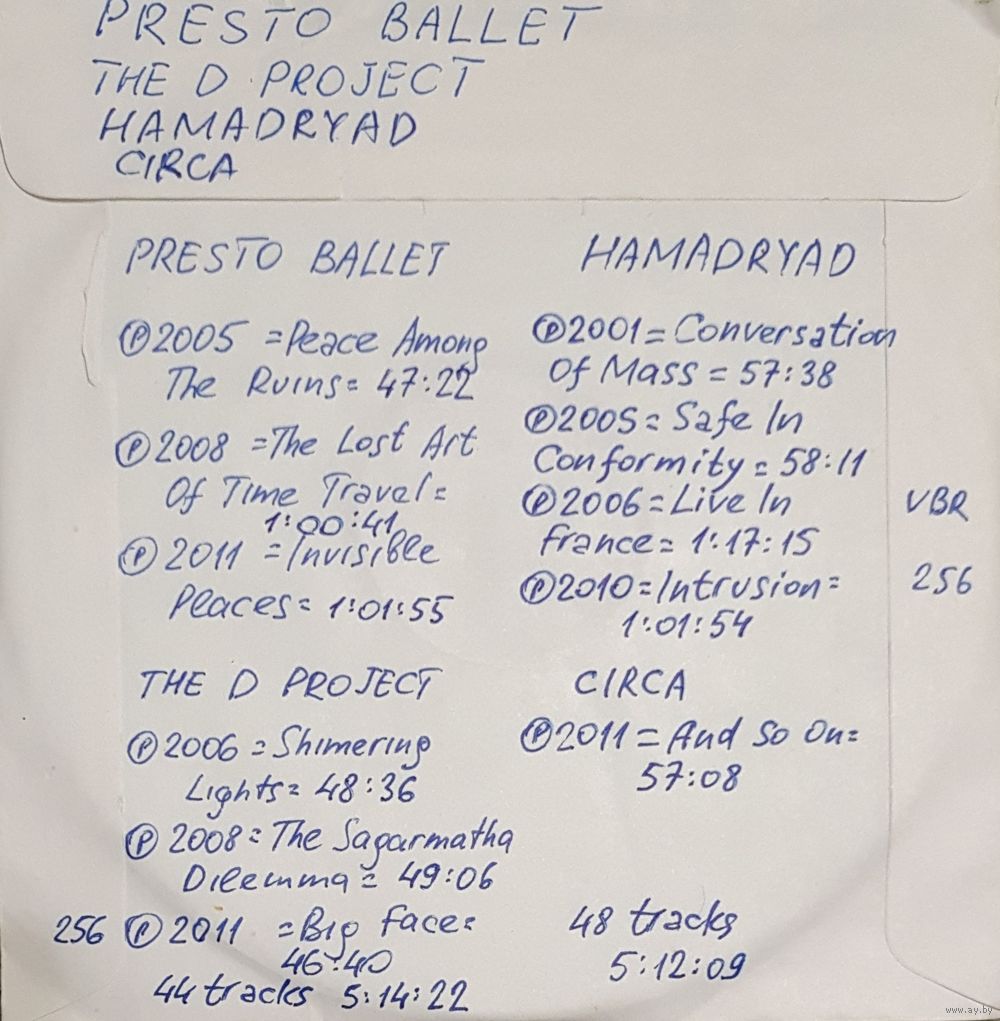 PRESTO BALLET
THE D PROJECT
HAMADRYAD
CIRCA
PRESTO BALLET
Ⓟ2005 =Peace Among
The Ruins= 47:22
Ⓟ2008 =The Lost Art
Of Time Travel=
1:00:41
Ⓟ2011 =Invisible
Places= 1:01:55
THE D PROJECT
Ⓟ2006 = Shimering
Lights= 48:36
Ⓟ2008= The Sagarmatha
Dilemma= 49:06
256 Ⓟ2011 =Big Face=
46:40
44 tracks 5:14:22
HAMADRYAD
Ⓟ2001= Conversation
Of Mass = 57:38
Ⓟ2005= Safe In
Conformity= 58:11
Ⓟ2006=Live In
France= 1:17:15
Ⓟ2010=Intrusion=
1:01:54
CIRCA
Ⓟ2011 = And So On=
57:08
48 tracks
5:12:09
VBR
256
www.ay.by